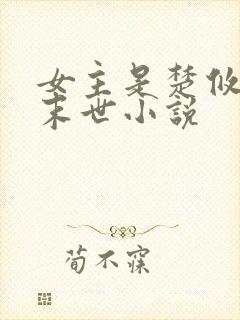 女主是楚攸
末世小說
荀不寐